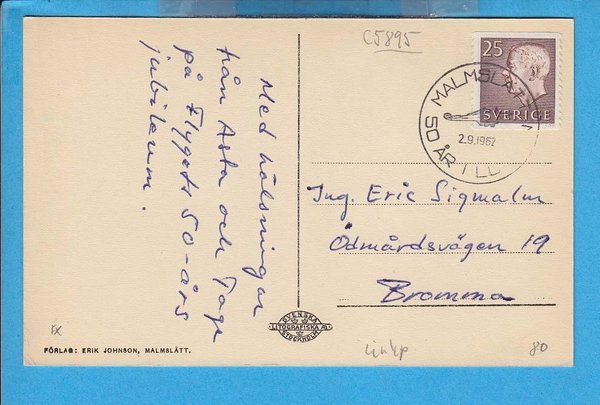 C5895
25
SVERIGE
MALMSLÄTT
50 ÅR I LL
2.9.1962
Med hälsningar
från Asta och Tage
på Flygets 50-års
jubileum.
Ing. Eric Sigmalm
Ödmårdsvägen 19
Bromma
SVENSKA
LITOGRAFISKA AB
STOCKHOLM
FÖRLAG: ERIK JOHNSON, MALMSLÄTT.
80